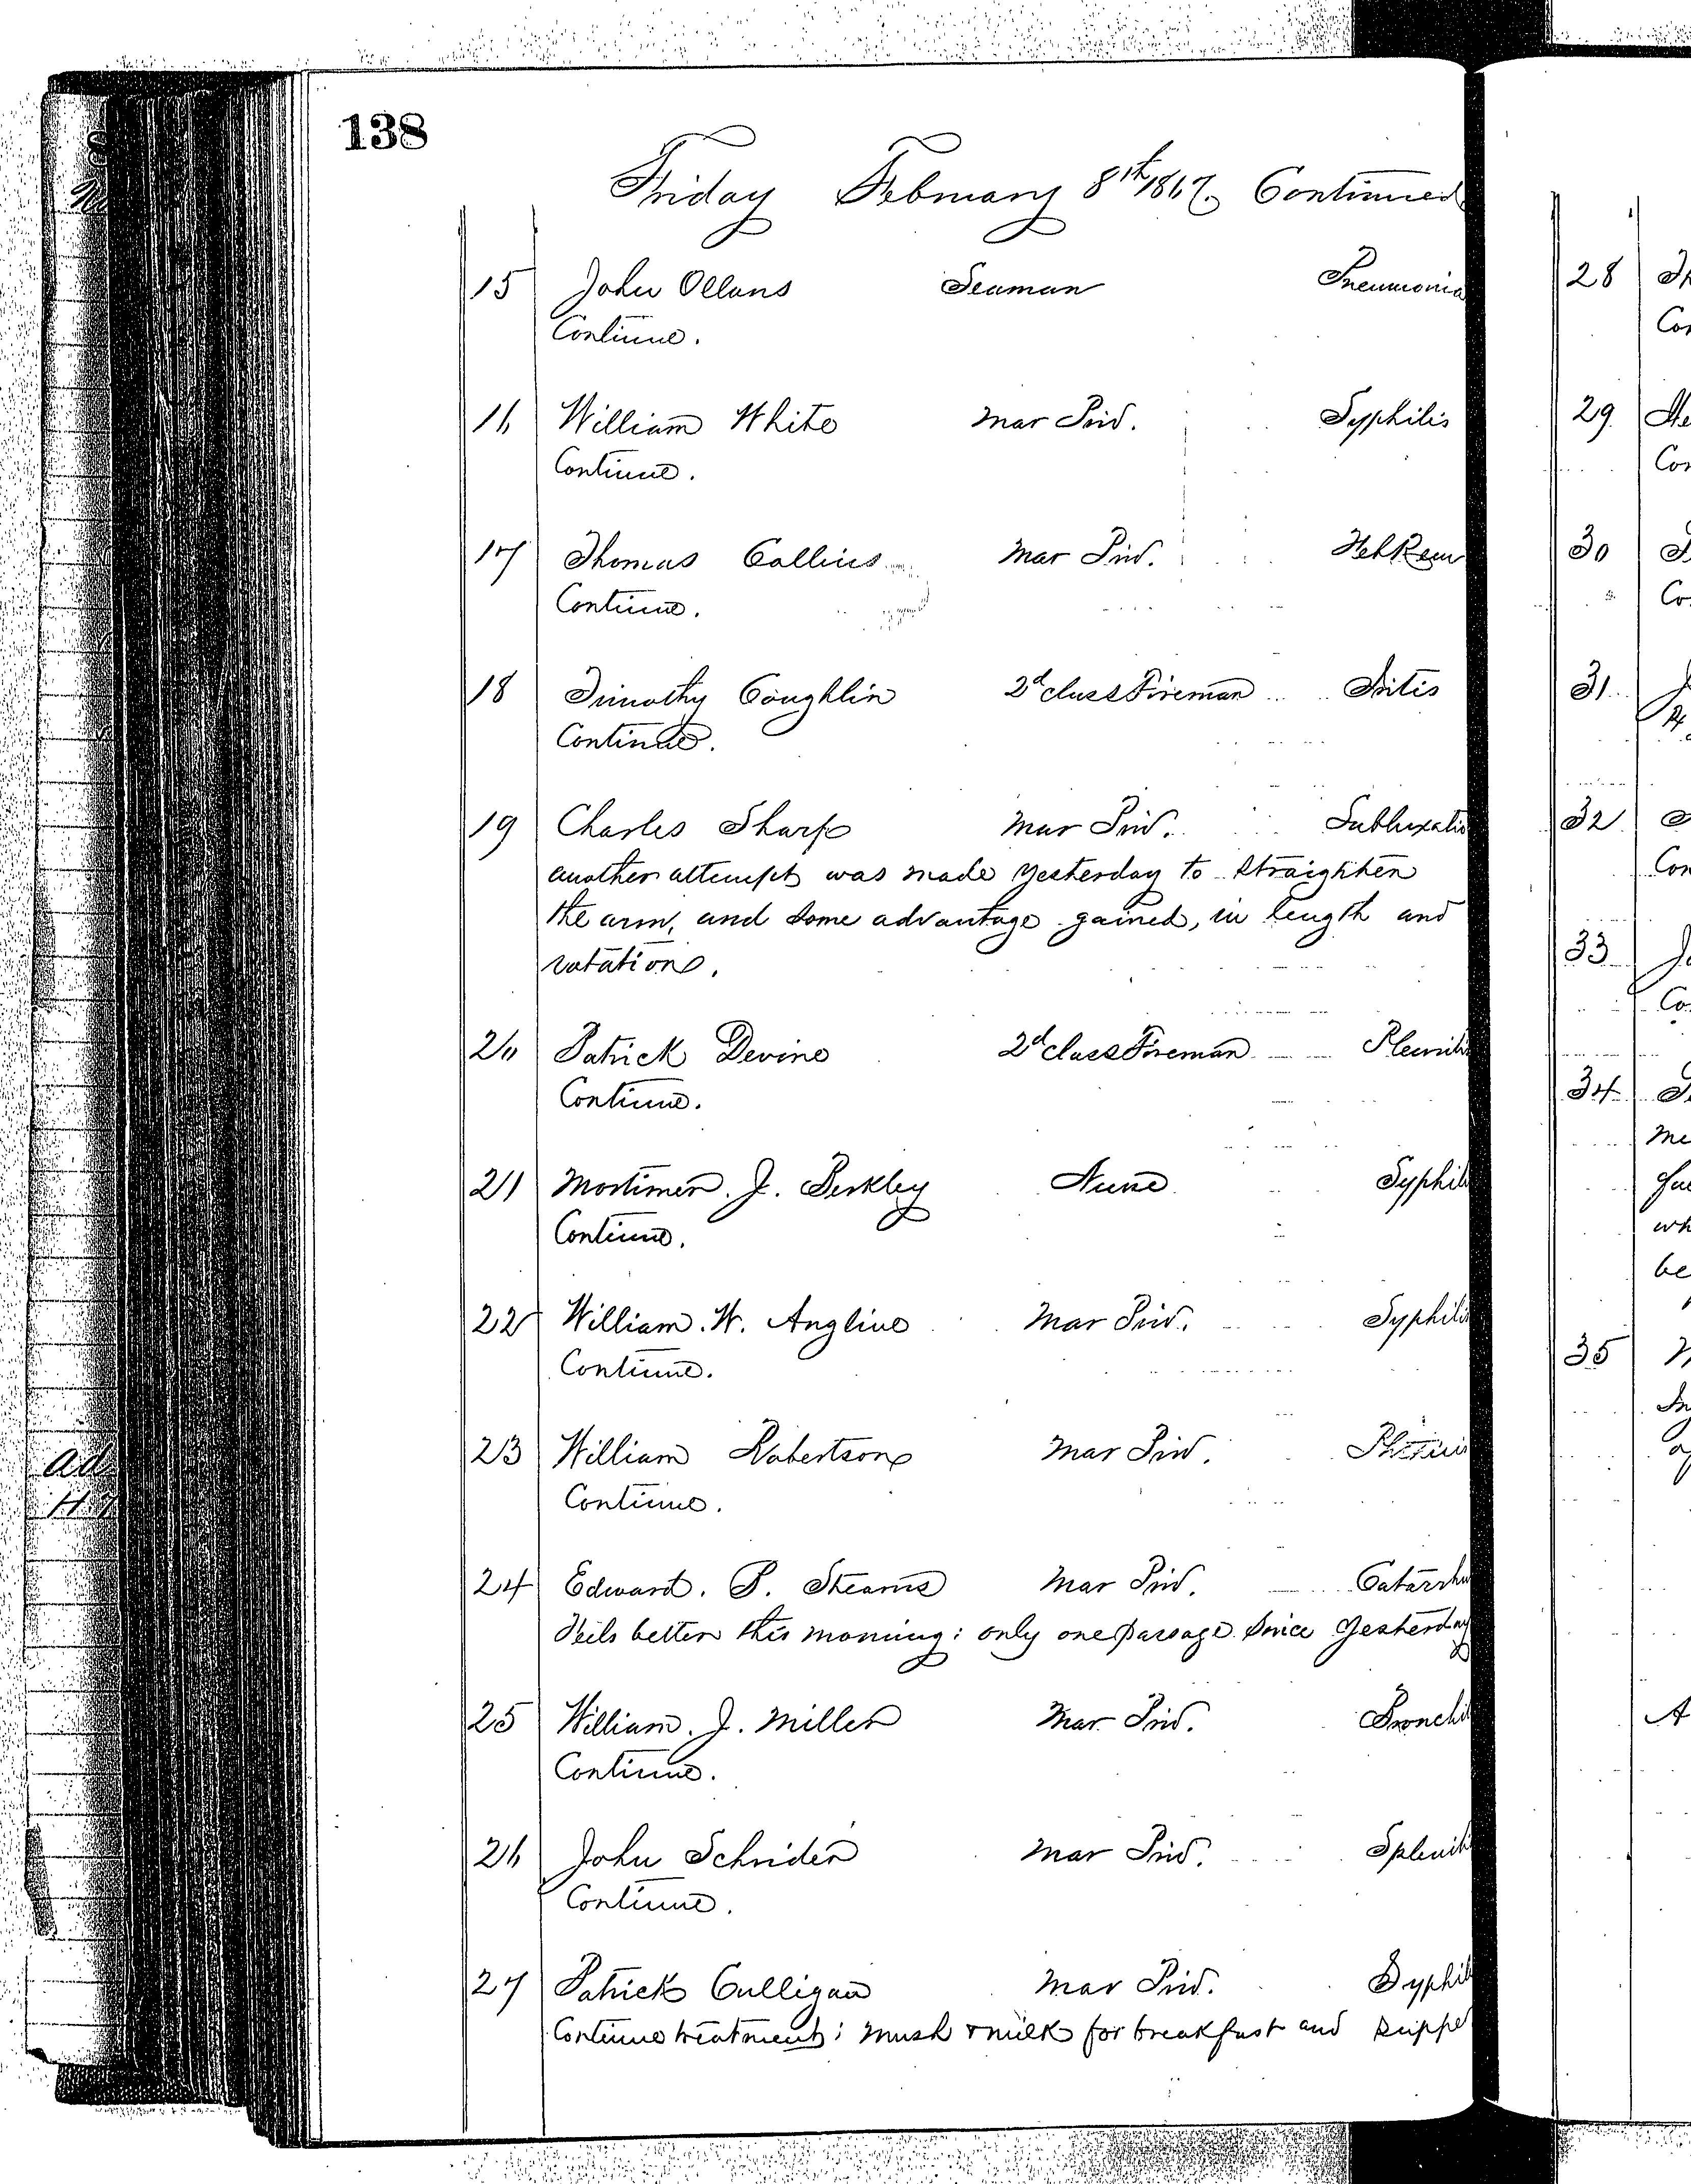 138
Friday February 8th 1867. Continued
15 John Ollans Seaman Pneumonia
Continue.
16 William White Mar Priv. Syphilis
Continue.
17 Thomas Collins Mar Priv.
Continue.
18 Timothy Coughlin 2d class Fireman Iritis
Continue.
19 Charles Sharp Mar Priv. Subluxatio
another attempt was made yesterday to straighten
the arm, and some advantage gained, in length and
rotation.
20 Patrick Devine 2d class Fireman Pleuritis
Continue.
21 Mortimer. J. Berkley Nurse Syphili
Continue.
22 William. W. Angline Mar Priv. Syphilis
Continue.
23 William Robertson Mar Priv. Phthisis
Continue.
24 Edward. P. Stearns Mar Priv. Catarrhu
Feels better this morning; only one passage since yesterday
25 William. J. Miller Mar Priv. Bronchi
Continue.
26 John Schrider Mar Priv. Splenit
Continue.
27 Patrick Culligan Mar Priv. Syphil
Continue treatment; mush & milk for breakfast and suppe
28
Con
29 He
Con
30
Co
31
32
Con
33 Jo
Co
34
me
wh
be
35